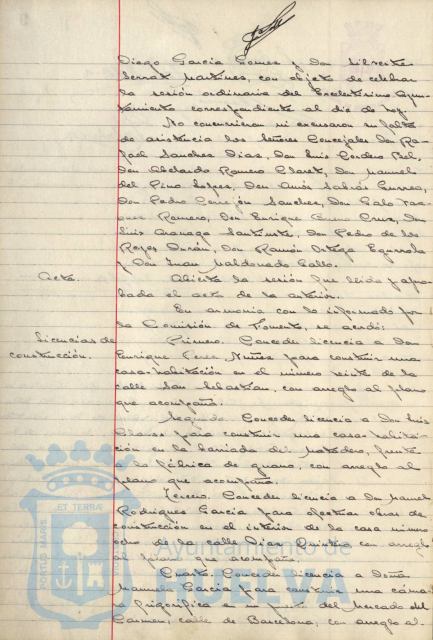 Diego García Gomez y Don Silvestre
Serrat Martinez, con objeto de celebrar
la sesión ordinaria del Excelentísimo Ayun-
tamiento correspondiente al día de hoy.
No concurrieron ni excusaron su falta
de asistencia los Señores Concejales Don Ra-
fael Sanchez Diaz, Don Luis Cordero Bel,
Don Abelardo Romero Claret, Don Manuel
del Pino Lopez, Don Amós Sabrás Gurrea,
Don Pedro Cerrejón Sanchez, Don Galo
Romero, Don Enrique Cruz, Don
Luis, Don Pedro de los
Reyes Durán, Don Ramón Ortega Eguirrola
y Don Juan Maldonado Gallo.
Acta. Abierta la sesión fue leída y apro-
bada el acta de la anterior.
En armonía con lo informado por
la Comisión de Fomento, se acordó:
Licencias de Primero. Conceder licencia a Don
construcción. Enrique Perez Nuñez para construir una
casa-habitación en el número veinte de la
calle San Sebastián, con arreglo al plano
que acompaña.
Segundo. Conceder licencia a Don Luis
para construir una casa-habita-
ción en la barriada del Matadero, frente
a la fábrica de guano, con arreglo al
plano que acompaña.
Tercero. Conceder licencia a Don Manuel
Rodriguez García para efectuar obras de
construcción en el interior de la casa número
ocho de la calle Diaz Quintero con arreglo
al plano que acompaña.
Cuarto. Conceder licencia a Doña
Manuela García para construir una cáma-
ra frigorífica en su puesto del Mercado del
Carmen, calle de Barcelona, con arreglo al
PORTUS MARIS ET TERRAE
Ayuntamiento de
HUELVA